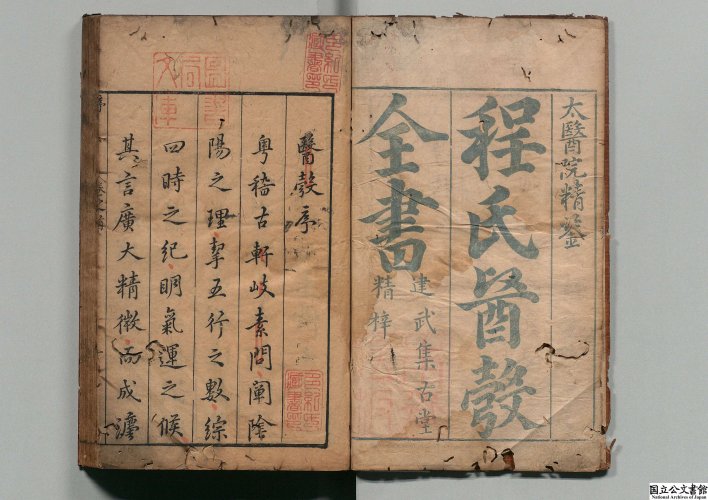 太醫院精鑒
程氏醫彀
全書
建武集古堂
精梓
醫彀序
粵稽古軒岐素問闡陰
陽之理挈五行之數綜
四時之紀明氣運之候
其言廣大精微而成
圖書
局
文庫
国立公文書館
National Archives of Japan